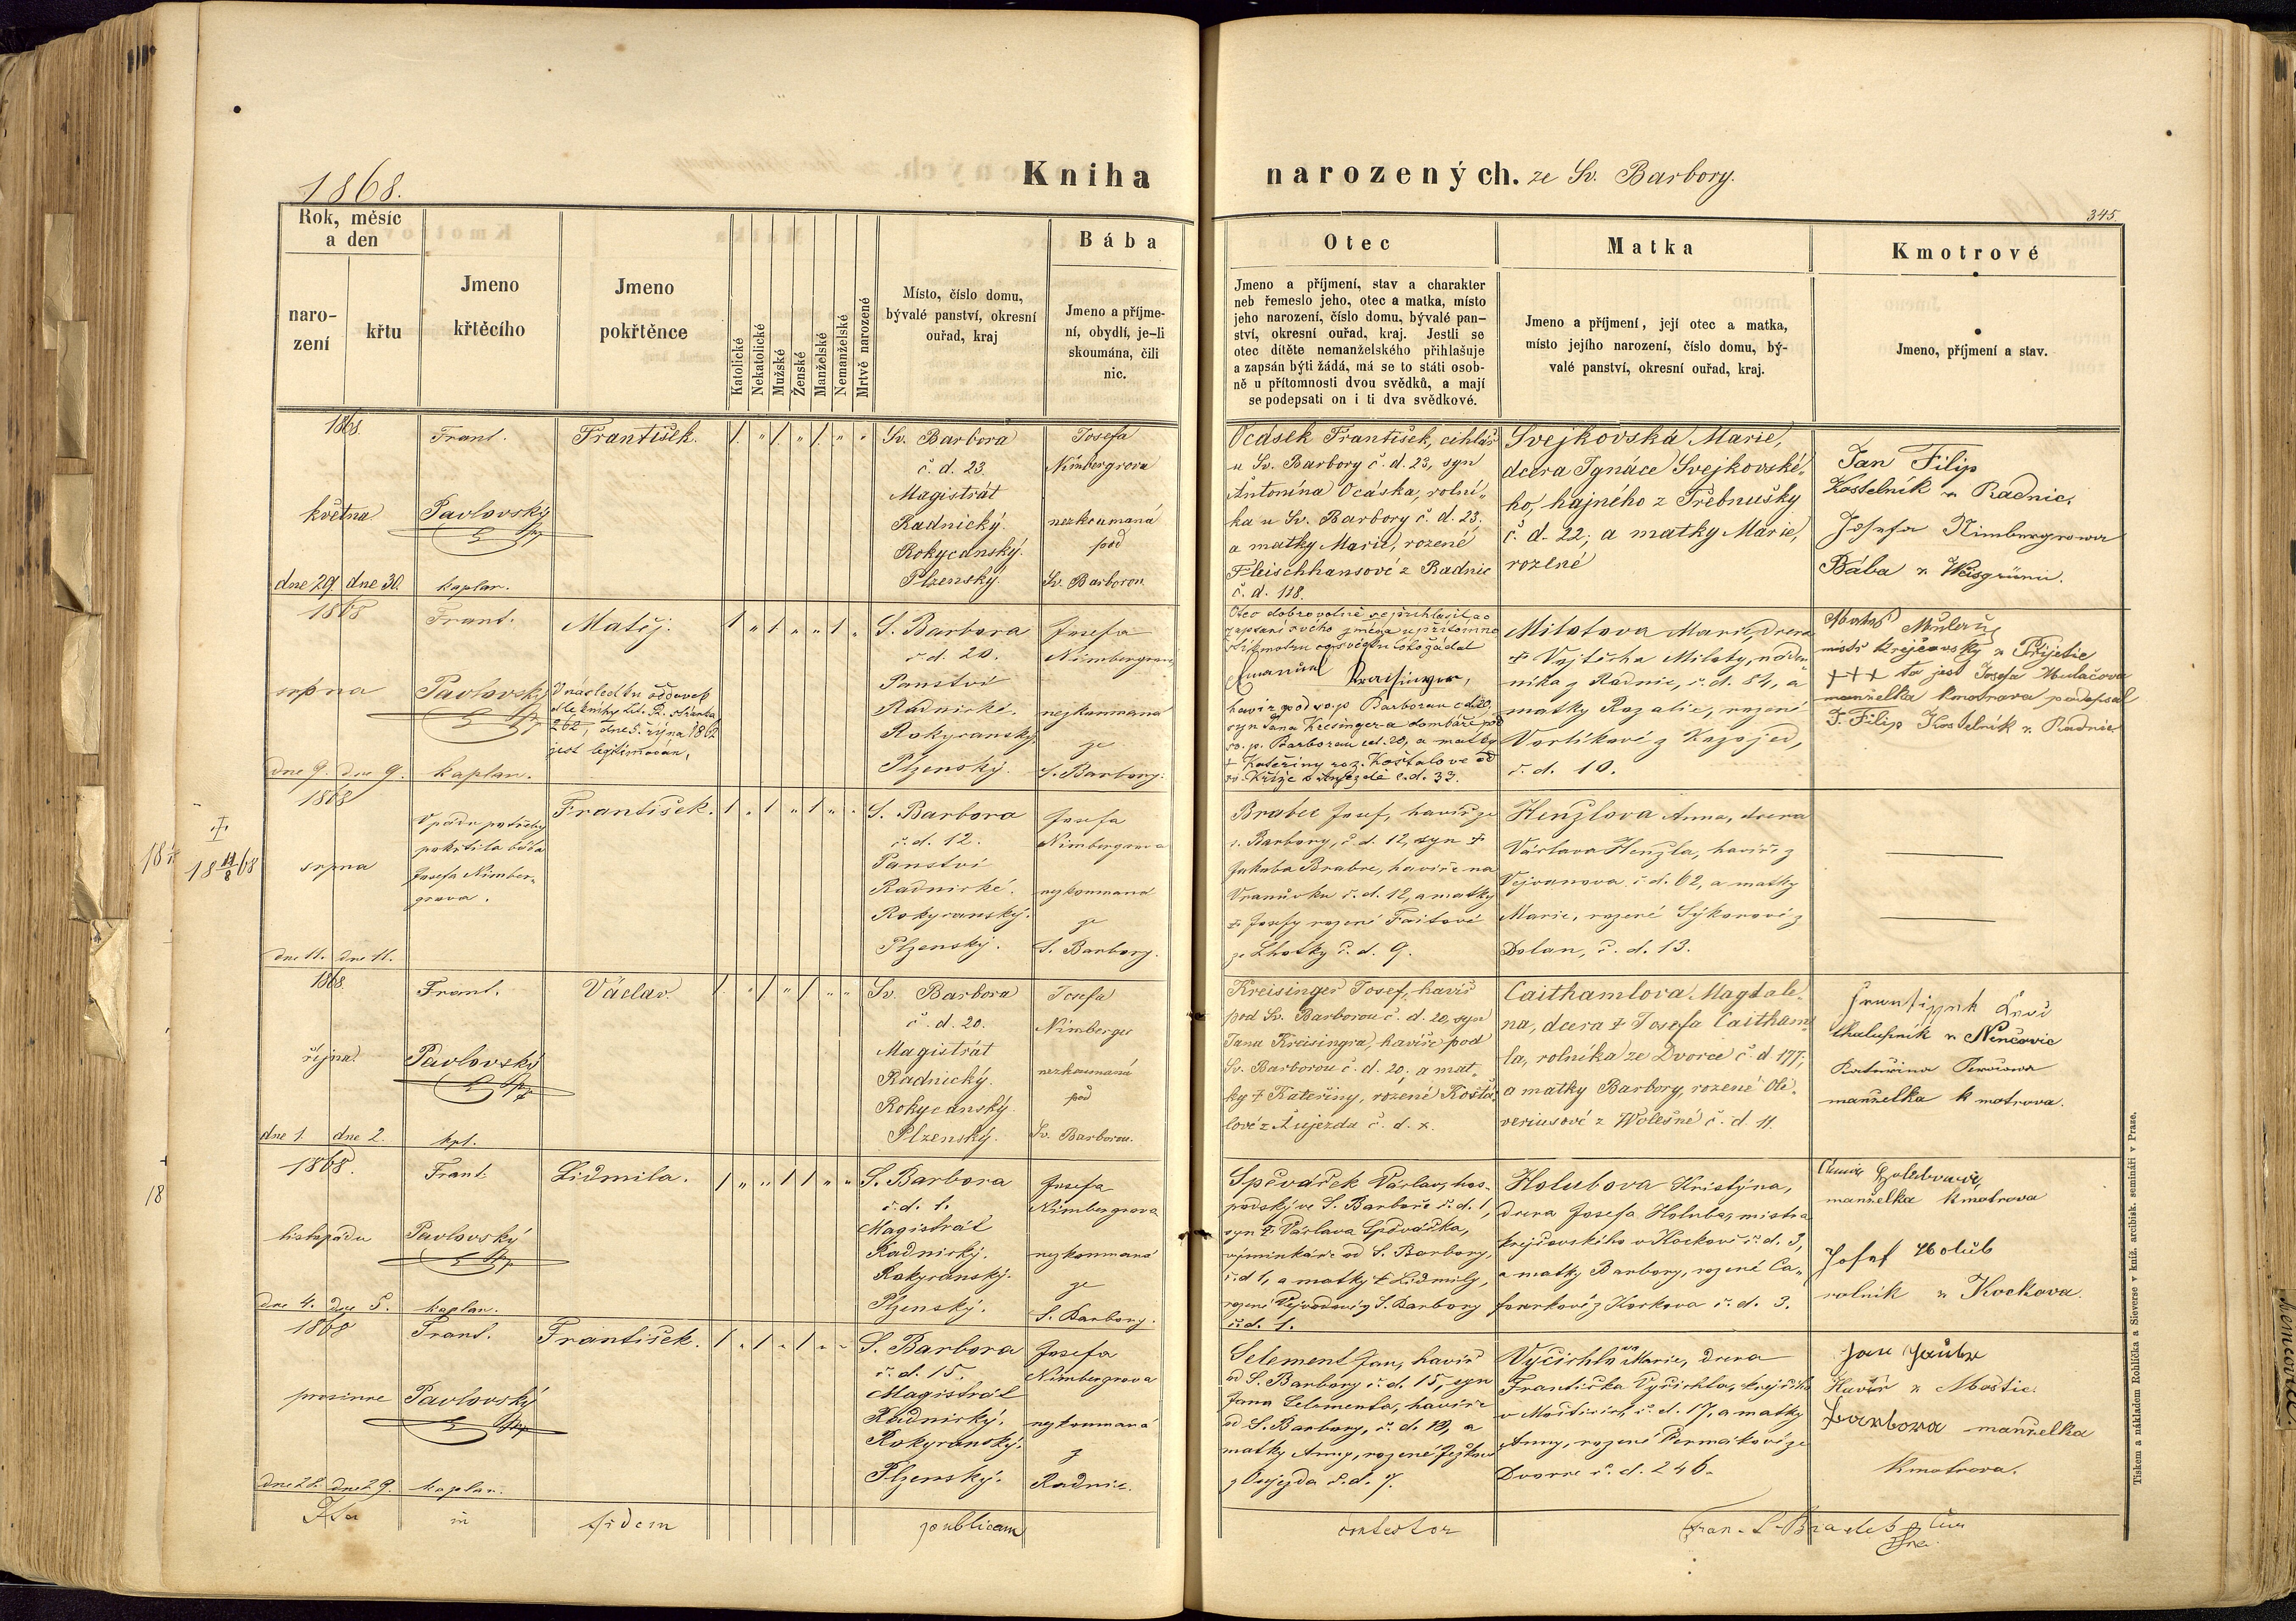 1868.
Kniha narozených. ze Sv. Barbory.
345.
Rok, měsíc
a den
naro-
zení
křtu
Jmeno
křtěcího
Jmeno
pokřtěnce
Katolické
Nekatolické
Mužské
Ženské
Manželské
Nemanželské
Mrtvě narozené
Místo, číslo domu,
bývalé panství, okresní
ouřad, kraj
Bába
Jmeno a příjme-
ní, obydlí, je-li
skoumána, čili
nic.
Otec
Jmeno a příjmení, stav a charakter
neb řemeslo jeho, otec a matka, místo
jeho narození, číslo domu, bývalé pan-
ství, okresní ouřad, kraj. Jestli se
otec dítěte nemanželského přihlašuje
a zapsán býti žádá, má se to státi osob-
ně u přítomnosti dvou svědků, a mají
se podepsati on i ti dva svědkové.
Matka
Jmeno a příjmení, její otec a matka,
místo jejího narození, číslo domu, bý-
valé panství, okresní ouřad, kraj.
Kmotrové
Jmeno, příjmení a stav.
1868.
května
dne 29. dne 30.
Frant.
Pavlovský
kaplan.
František.
Sv. Barbora
č. d. 23.
Magistrát
Radnický.
Rokycanský.
Plzenský.
Josefa
Nimbergrova
nezkoumaná
pod
Sv. Barborou
Ocásek František, cihlář
u Sv. Barbory č. d. 23, syn
Antonína Ocáska, rolní-
ka u Sv. Barbory č. d. 23,
a matky Marie, rozené
Fleischhansové z Radnic
č. d. 118.
Svejkovská Marie,
dcera Ignáce Svejkovské-
ho, hajného z Třebnušky
č. d. 22; a matky Marie,
rozené
Jan Filip
Kostelník z Radnic.
Josefa Nimbergrowa
Bába z Weisgrünu.
1868
srpna
dne 9. dne 9.
Frant.
Pavlovský
kaplan.
Matěj.
V následku oddavek
dle knihy Lit. R. stránka
262, dne 5. října 1862
jest legitimován.
S. Barbora
č. d. 20.
Panství
Radnické.
Rokycanský.
Plzenský.
Josefa
Nimbergrova
nezkoumaná
ze
S. Barbory.
Otec dobrovolně se přihlásil a o
zapsání svého jména u přítomno
sti kmotrů co svědků toto žádal
Emanuel Kraisinger,
havíř pod sv. p. Barborau č. d. 20,
syn Jana Krésingera dombáře pod
sv. p. Barborau čd. 20, a matky
† Kateřiny roz. Košťalové od
sv. Kříže v Aujezdě č. d. 33.
Milotova Marie, dcera
† Vojtěcha Miloty, náden-
níka z Radnic, č. d. 84, a
matky Rozalie, rozené
Vorlíkové z Kazojed,
č. d. 10.
mistr krejčovský z Přijetic
+++ to jest Josefa Mulačova
manželka kmotrova podepsal
J. Filip Kostelník z Radnic
1868
srpna
dne 11. dne 11.
†
18 11/8 68
V pádu potřeby
pokřtila bába
Josefa Nimber-
grova.
František.
S. Barbora
č. d. 12.
Panství
Radnické.
Rokycanský.
Plzenský.
Josefa
Nimbergrova
nezkoumaná
ze
S. Barbory.
Brabec Josef, havíř ze
s. Barbory, č. d. 12, syn †
Jakuba Brabce, havíře na
Vranůvku č. d. 12, a matky
† Josefy rozené Faitové
ze Lhotky č. d. 9.
Henzlova Anna, dcera
Václava Henzla, havíře z
Vejvanova č. d. 62, a matky
Marie, rozené Sýkorové z
Dolan, č. d. 13.
1868.
října
dne 1. dne 2.
Frant.
Pavlovský
kpl.
Václav.
Sv. Barbora
č. d. 20.
Magistrát
Radnický.
Rokycanský.
Plzenský.
Josefa
Nimberger
nezkoumaná
pod
Sv. Barborou.
Kreisinger Josef, havíř
pod Sv. Barborou č. d. 20, syn
Jana Kreisingra, havíře pod
Sv. Barborou č. d. 20; a mat-
ky † Kateřiny, rozené Košťá-
lové z Aujezda č. d. x.
Caithamlova Magdale-
na, dcera † Josefa Caitham-
la, rolníka ze Dvorce č. d. 177;
a matky Barbory, rozené Oli-
veriusové z Wolešné č. d. 11.
chalupník z Němčovic
manželka kmotrova.
1868.
listopadu
dne 4. dne 5.
Frant.
Pavlovský
kaplan.
Lidmila.
S. Barbora
č. d. 1.
Magistrát
Radnický.
Rokycanský.
Plzenský.
Josefa
Nimbergrova
nezkoumaná
ze
S. Barbory.
Spěváček Václav, hos-
podský ve S. Barboře č. d. 1,
syn † Václava Spěváčka,
výminkáře od S. Barbory,
č. d. 1, a matky † Lidmily,
rozené Vejvodové z S. Barbory
č. d. 1.
Holubova Kristýna,
dcera Josefa Holuba, mistra
krejčovského v Kockově č. d. 3,
a matky Barbory, rozené Ca-
z Kockova č. d. 3.
manželka kmotrova
Josef Holub
rolník z Kockova.
1868
prosince
dne 28. dne 29.
Frant.
Pavlovský
kaplan.
František.
S. Barbora
č. d. 15.
Magistrát
Radnický.
Rokycanský.
Plzenský.
Josefa
Nimbergrova
nezkoumaná
z
Radnic.
Selement Jan, havíř
od S. Barbory č. d. 15, syn
Jana Selementa, havíře
od S. Barbory, č. d. 19, a
matky Anny, rozené Ježkové
z Oujezda č. d. 7.
Vyčichlova Marie, dcera
Františka Vyčichla, krejčího
v Mosticích č. d. 17, a matky
Anny, rozené Permaikové ze
Dvorce č. d. 246.
Havíř z Moštic.
Barbora manželka
kmotrova.
Ita in fidem publicam contestor
Tiskem a nákladem Rohlíčka a Sieverse v kníž. arcibisk. semináři v Praze.